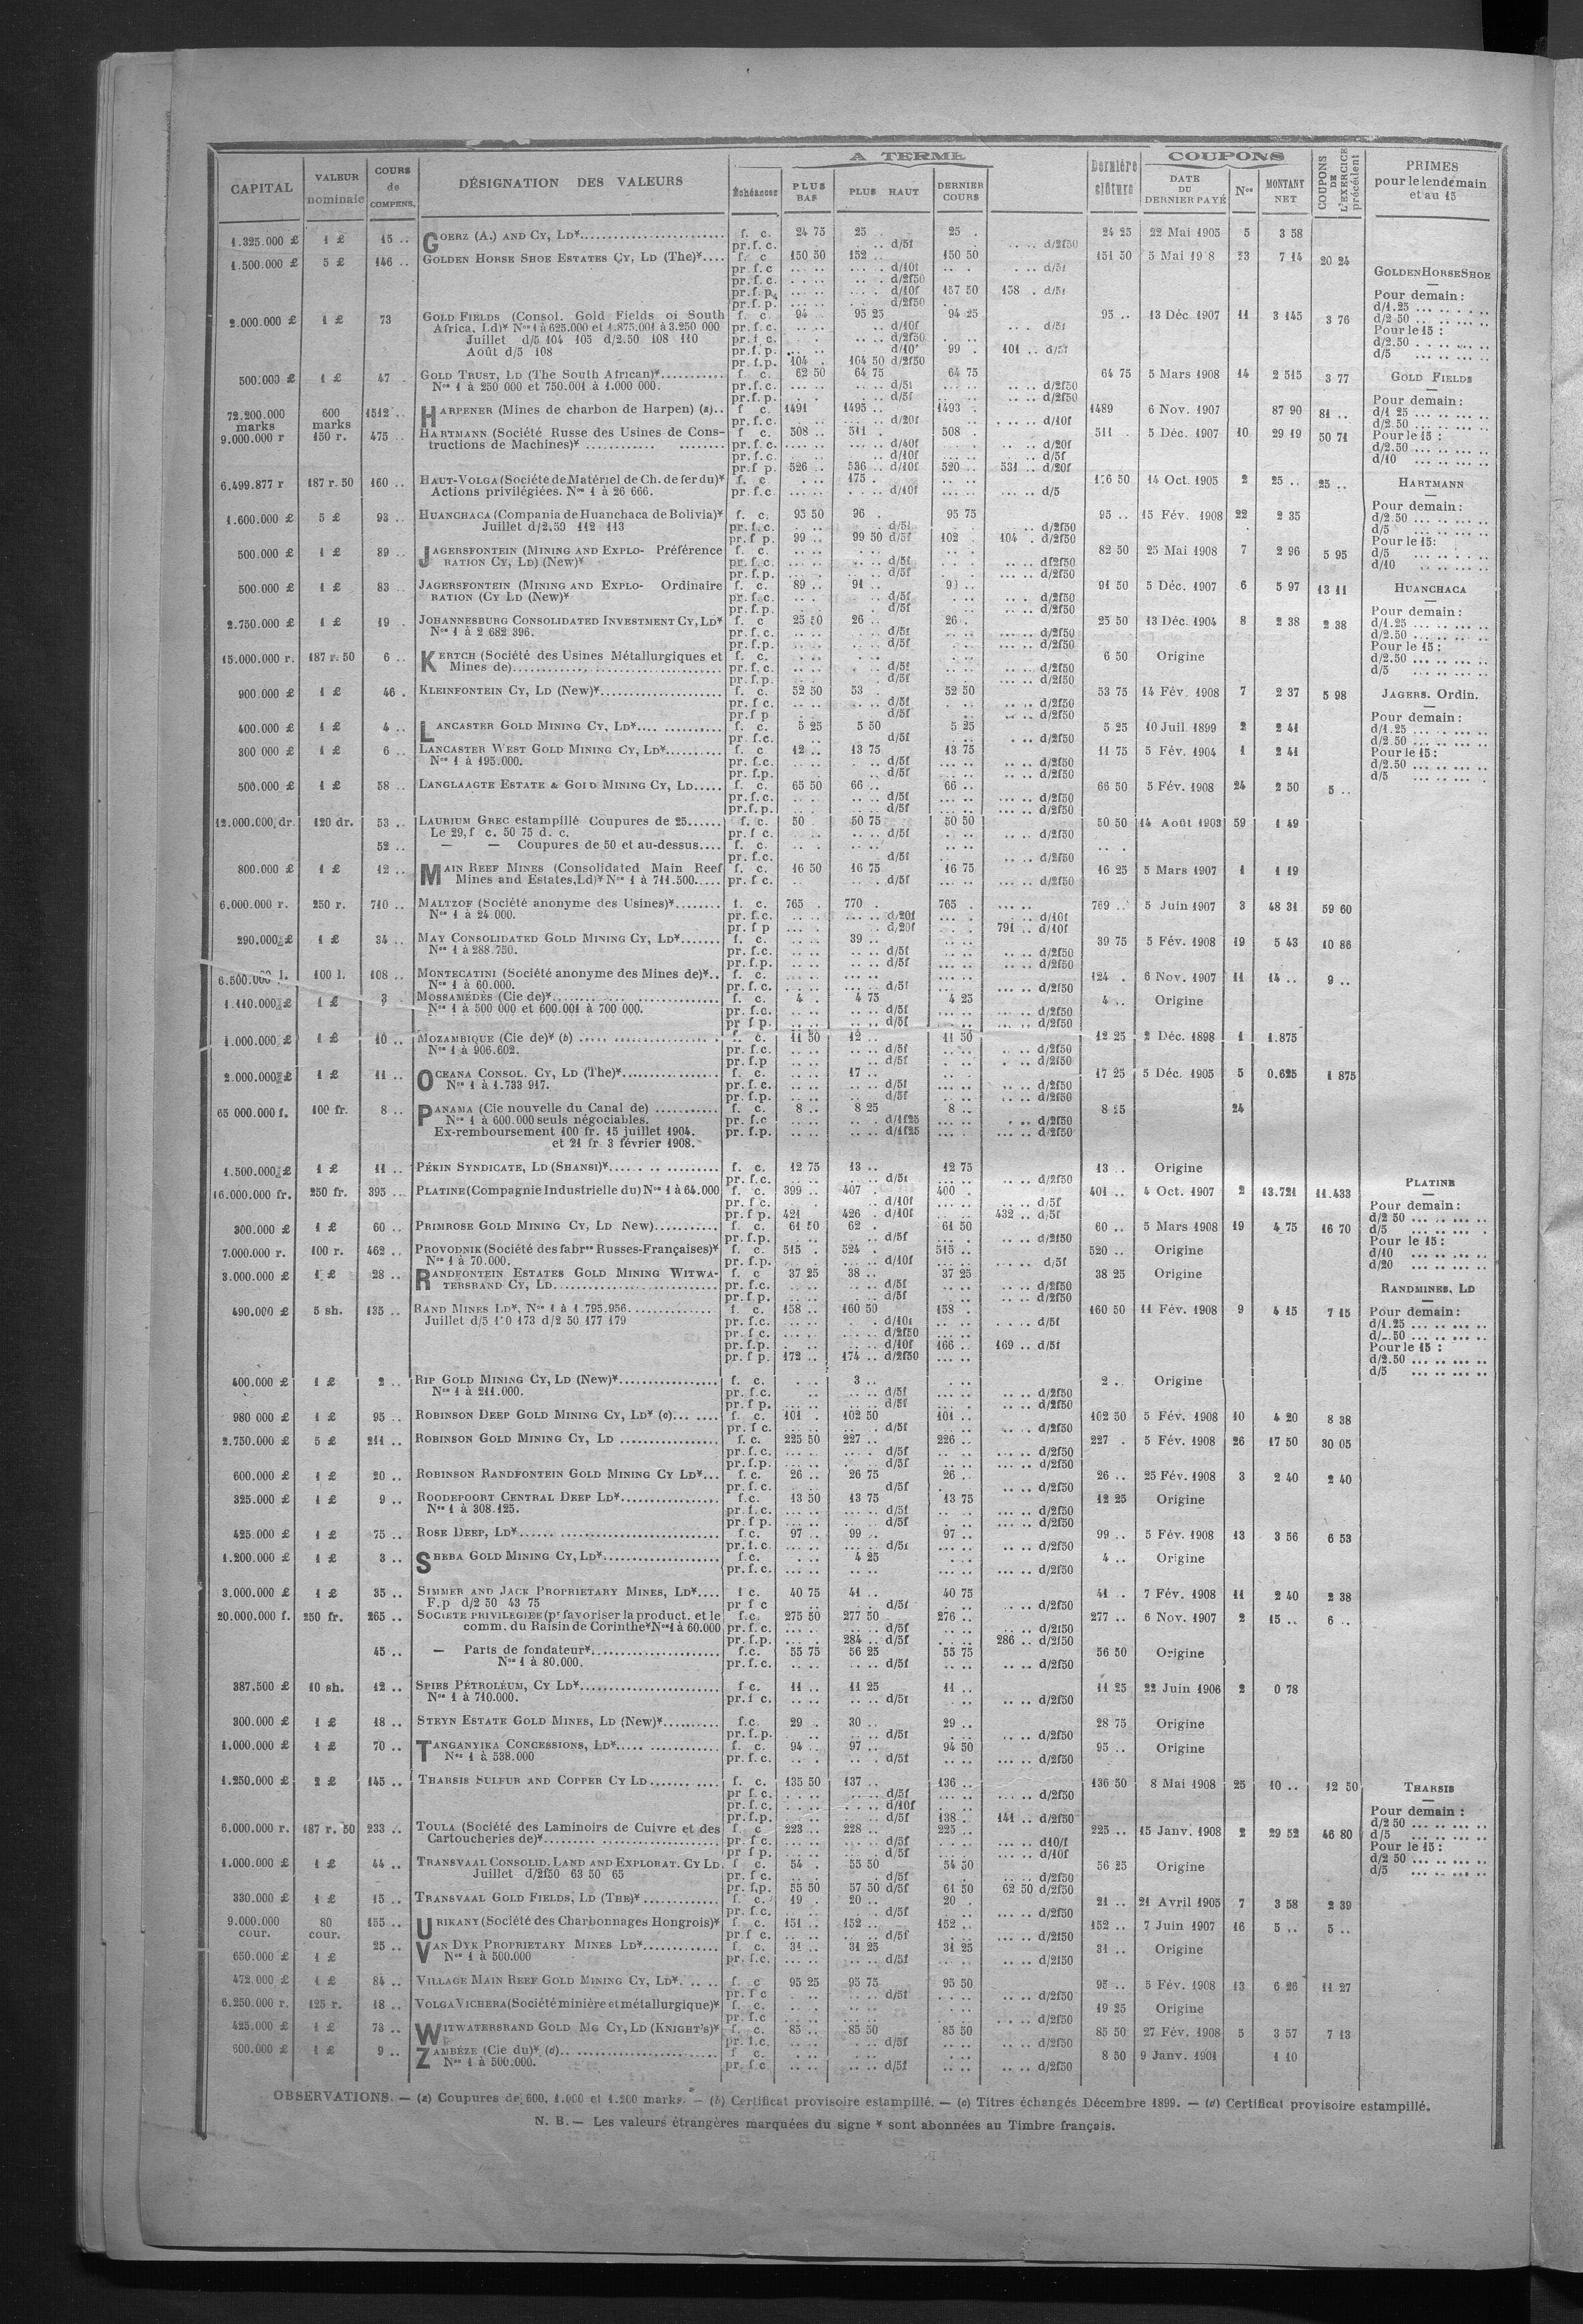 A TERME
COUPONS
CAPITAL
VALEUR nominale
COURS de COMPENS.
DÉSIGNATION DES VALEURS
Échéances
PLUS BAS
PLUS HAUT
DERNIER COURS
Dernière clôture
DATE DU DERNIER PAYÉ
Nos
MONTANT NET
COUPONS DE L'EXERCICE précédent
PRIMES pour le lendemain et au 15
1.325.000 £ 1 £ 15 .. GOERZ (A.) AND CY, LD* f. c. 24 75 25 .. 25 . 24 25 22 Mai 1905 5 3 58
pr. f. c. d/5f d/2f50
1.500.000 £ 5 £ 146 .. GOLDEN HORSE SHOE ESTATES CY, LD (The)* f. c. 150 50 152 .. 150 50 151 50 5 Mai 19 8 23 7 14 20 24
pr. f. c d/10f d/5f
pr. f. c. d/2f50
pr. f. p. d/10f 157 50 158 . d/5f
pr. f. p. d/2f50
2.000.000 £ 1 £ 73 GOLD FIELDS (Consol. Gold Fields of South f. c. 94 95 25 94 25 95 .. 13 Déc. 1907 11 3 145 3 76
Africa, Ld)* Nos 1 à 625.000 et 1.875.001 à 3.250 000 pr. f. c. d/10f d/5f
Juillet d/5 104 105 d/2.50 108 110 pr. f. c. d/2f50
Août d/5 108 pr. f. p. d/10f 99 . 101 .. d/5f
pr. f. p. 104 . 104 50 d/2f50
500.000 £ 1 £ 47 . GOLD TRUST, LD (The South African)* f. c. 62 50 64 75 64 75 64 75 5 Mars 1908 14 2 515 3 77
Nos 1 à 250 000 et 750.001 à 1.000 000. pr. f. c. d/5f d/2f50
pr. f. p. d/5f d/2f50
72.200.000 marks 600 marks 1512 .. HARPENER (Mines de charbon de Harpen) (a) f. c. 1491 1495 .. 1493 . 1489 6 Nov. 1907 87 90 81 ..
pr. f. c. d/20f d/10f
9.000.000 r 150 r. 475 .. HARTMANN (Société Russe des Usines de Cons- f. c. 508 .. 511 . 508 . 511 . 5 Déc. 1907 10 29 19 50 71
tructions de Machines)* pr. f. c. d/40f d/20f
pr. f. c. d/10f d/5f
pr. f. p. 526 .. 536 .. d/10f 520 .. 531 .. d/20f
6.499.877 r 187 r. 50 160 .. HAUT-VOLGA (Société de Matériel de Ch. de fer du)* f. c. 175 . 176 50 14 Oct. 1905 2 25 .. 25 ..
Actions privilégiées. Nos 1 à 26 666. pr. f. c d/10f d/5
1.600.000 £ 5 £ 93 .. HUANCHACA (Compania de Huanchaca de Bolivia)* f. c. 95 50 96 . 95 75 95 .. 15 Fév. 1908 22 2 35
Juillet d/2.50 112 113 pr. f. c. d/5f d/2f50
pr. f. p. 99 .. 99 50 d/5f 102 . 104 . d/2f50
500.000 £ 1 £ 89 .. JAGERSFONTEIN (MINING AND EXPLO- Préférence f. c. 82 50 25 Mai 1908 7 2 96 5 95
RATION CY, LD) (New)* pr. f. c. d/5f d/2f50
pr. f. p. d/5f d/2f50
500.000 £ 1 £ 83 .. JAGERSFONTEIN (MINING AND EXPLO- Ordinaire f. c. 89 .. 91 .. 91 50 5 Déc. 1907 6 5 97 13 11
RATION (CY LD (New)* pr. f. c. d/5f d/2f50
pr. f. p. d/5f d/2f50
2.750.000 £ 1 £ 19 .. JOHANNESBURG CONSOLIDATED INVESTMENT CY, LD* f. c 25 50 26 .. 26 . 25 50 13 Déc. 1904 8 2 38 2 38
Nos 1 à 2 682 396. pr. f. c. d/5f d/2f50
pr. f. p. d/5f d/2f50
15.000.000 r. 187 r. 50 6 .. KERTCH (Société des Usines Métallurgiques et f. c. 6 50 Origine
Mines de) pr. f. c. d/5f d/2f50
pr. f. p. d/5f d/2f50
900.000 £ 1 £ 46 . KLEINFONTEIN CY, LD (New)* f. c. 52 50 53 . 52 50 53 75 14 Fév. 1908 7 2 37 5 98
pr. f c. d/5f d/2f50
pr. f p d/5f d/2f50
400.000 £ 1 £ 4 .. LANCASTER GOLD MINING CY, LD* f. c. 5 25 5 50 5 25 5 25 10 Juil. 1899 2 2 41
pr. f. c. d/5f d/2f50
300 000 £ 1 £ 6 .. LANCASTER WEST GOLD MINING CY, LD* f. c 12 .. 13 75 13 75 11 75 5 Fév. 1904 1 2 41
Nos 1 à 195.000. pr. f. c. d/5f d/2f50
pr. f. p. d/5f d/2f50
500.000 £ 1 £ 58 .. LANGLAAGTE ESTATE & GOLD MINING CY, LD f. c. 65 50 66 .. 66 .. 66 50 5 Fév. 1908 24 2 50 5 ..
pr. f. c. d/5f d/2f50
pr. f. p. d/5f d/2f50
12.000.000 dr. 120 dr. 53 .. LAURIUM GREC estampillé Coupures de 25 f. c. 50 . 50 75 50 50 50 50 14 Août 1903 59 1 49
Le 29, f c. 50 75 d. c. pr. f c. d/5f d/2f50
52 .. — — Coupures de 50 et au-dessus f. c.
pr. f. c. d/5f d/2f50
800.000 £ 1 £ 12 .. MAIN REEF MINES (Consolidated Main Reef f. c. 16 50 16 75 16 75 16 25 5 Mars 1907 1 1 19
Mines and Estates, Ld)* Nos 1 à 711.500 pr. f c. d/5f d/2f50
6.000.000 r. 250 r. 710 .. MALTZOF (Société anonyme des Usines)* f. c. 765 . 770 . 765 . 769 .. 5 Juin 1907 3 48 31 59 60
Nos 1 à 24 000. pr. f. c. d/20f d/10f
pr. f p d/20f 791 .. d/10f
290.000 £ 1 £ 34 .. MAY CONSOLIDATED GOLD MINING CY, LD* f. c. 39 .. 39 75 5 Fév. 1908 19 5 43 10 86
Nos 1 à 288.750. pr. f. c. d/5f d/2f50
pr. f. p. d/5f d/2f50
6.500.000 l. 100 l. 108 .. MONTECATINI (Société anonyme des Mines de)* f. c. 124 . 6 Nov. 1907 11 14 .. 9 ..
Nos 1 à 60.000. pr. f. c. d/5f d/2f50
1.110.000 £ 1 £ 3 . MOSSAMÉDÈS (Cie de)* f. c. 4 . 4 75 4 25 4 .. Origine
Nos 1 à 500 000 et 600.001 à 700 000. pr. f. c. d/5f d/2f50
pr f p. d/5f d/2f50
1.000.000 £ 1 £ 10 .. MOZAMBIQUE (Cie de)* (b) f. c. 11 50 12 .. 11 50 12 25 2 Déc. 1898 1 1.875
Nos 1 à 906.602. pr. f. c. d/5f d/2f50
pr. f.p d/5f d/2f50
2.000.000 £ 1 £ 11 .. OCEANA CONSOL. CY, LD (The)* f. c. 17 .. 17 25 5 Déc. 1905 5 0.625 1 875
Nos 1 à 1.733 917. pr. f. c. d/5f d/2f50
pr. f. p. d/5f d/2f50
65 000.000 f. 100 fr. 8 .. PANAMA (Cie nouvelle du Canal de) f. c. 8 .. 8 25 8 .. 8 25 24
Nos 1 à 600.000 seuls négociables. pr. f.c d/1f25 d/2f50
Ex-remboursement 100 fr. 15 juillet 1904. pr. f.p. d/1f25 d/2f50
et 21 fr. 3 février 1908.
1.500.000 £ 1 £ 11 .. PÉKIN SYNDICATE, LD (SHANSI)* f. c. 12 75 13 .. 12 75 13 .. Origine
pr. f. c. d/5f d/2f50
16.000.000 fr. 250 fr. 395 .. PLATINE (Compagnie Industrielle du) Nos 1 à 64.000 f. c. 399 .. 407 . 400 . 401 .. 4 Oct. 1907 2 13.721 11.433
pr. f c. d/10f d/5f
pr. f p. 421 426 . d/10f 432 .. d/5f
300.000 £ 1 £ 60 .. PRIMROSE GOLD MINING CY, LD New) f. c. 61 50 62 . 61 50 60 .. 5 Mars 1908 19 4 75 16 70
pr. f.p. d/5f d/2f50
7.000.000 r. 100 r. 462 .. PROVODNIK (Société des fabres Russes-Françaises)* f. c. 515 . 524 . 515 .. 520 .. Origine
Nos 1 à 70.000. pr. f.p. d/10f d/5f
3.000.000 £ 1 £ 28 .. RANDFONTEIN ESTATES GOLD MINING WITWA- f. c 37 25 38 .. 37 25 38 25 Origine
TERSRAND CY, LD pr. f.c. d/5f d/2f50
pr. f.p. d/5f d/2f50
490.000 £ 5 sh. 135 .. RAND MINES LD*, Nos 1 à 1.795.956 f. c. 158 .. 160 50 158 . 160 50 11 Fév. 1908 9 4 15 7 15
Juillet d/5 1 0 173 d/2 50 177 179 pr. f. c. d/10f d/5f
pr. f c. d/2f50
pr. f.p. d/10f 166 .. 169 .. d/5f
pr. f p. 172 .. 174 .. d/2f50
400.000 £ 1 £ 2 .. RIP GOLD MINING CY, LD (New)* f. c. 3 .. 2 .. Origine
Nos 1 à 211.000. pr. f.c. d/5f d/2f50
pr. f p. d/5f d/2f50
980 000 £ 1 £ 95 .. ROBINSON DEEP GOLD MINING CY, LD* (c) f. c. 101 . 102 50 101 .. 102 50 5 Fév. 1908 10 4 20 8 38
pr. f c. d/5f d/2f50
2.750.000 £ 5 £ 211 .. ROBINSON GOLD MINING CY, LD f. c. 225 50 227 .. 226 .. 227 . 5 Fév. 1908 26 17 50 30 05
pr. f.c. d/5f d/2f50
pr. f.p. d/5f d/2f50
600.000 £ 1 £ 20 .. ROBINSON RANDFONTEIN GOLD MINING CY LD* f.c. 26 .. 26 75 26 . 26 .. 25 Fév. 1908 3 2 40 2 40
pr. f. c. d/5f d/2f50
325.000 £ 1 £ 9 .. ROODEPOORT CENTRAL DEEP LD* f.c. 13 50 13 75 13 75 12 25 Origine
Nos 1 à 308.125. pr. f. c. d/5f d/2f50
pr. f p. d/5f d/2f50
425.000 £ 1 £ 75 .. ROSE DEEP, LD* f.c. 97 . 99 .. 97 .. 99 .. 5 Fév. 1908 13 3 56 6 53
pr. f. c. d/5f d/2f50
1.200.000 £ 1 £ 3 .. SHEBA GOLD MINING CY, LD* f.c. 4 25 4 .. Origine
pr. f.c. d/2f50
3.000.000 £ 1 £ 35 .. SIMMER AND JACK PROPRIETARY MINES, LD* f c. 40 75 41 .. 40 75 41 .. 7 Fév. 1908 11 2 40 2 38
F.p d/2 50 43 75 pr f c d/5f d/2f50
20.000.000 f. 250 fr. 265 .. SOCIÉTÉ PRIVILÉGIÉE (pr favoriser la product. et le f.c. 275 50 277 50 276 .. 277 .. 6 Nov. 1907 2 15 .. 6 ..
comm. du Raisin de Corinthe* Nos 1 à 60.000 pr. f. c. d/5f d/2f50
pr. f.p. 284 .. d/5f 286 .. d/2f50
45 .. — Parts de fondateur* f.c. 55 75 56 25 55 75 56 50 Origine
Nos 1 à 80.000. pr. f. c. d/5f d/2f50
387.500 £ 10 sh. 12 .. SPIES PÉTROLÉUM, CY LD* f c. 11 .. 11 25 11 .. 11 25 22 Juin 1906 2 0 78
Nos 1 à 710.000. pr. f c. d/5f d/2f50
300.000 £ 1 £ 18 .. STEYN ESTATE GOLD MINES, LD (New)* f.c. 29 . 30 .. 29 .. 28 75 Origine
pr. f.p. d/5f d/2f50
1.000.000 £ 1 £ 70 .. TANGANYIKA CONCESSIONS, LD* f. c. 94 .. 97 .. 94 50 95 .. Origine
Nos 1 à 538.000 pr. f. c. d/5f d/2f50
1.250.000 £ 2 £ 145 .. THARSIS SULFUR AND COPPER CY LD f. c. 135 50 137 .. 136 .. 136 50 8 Mai 1908 25 10 .. 12 50
pr f c. d/5f d/2f50
pr. f. c. d/10f
pr. f.p. d/5f 138 .. 141 .. d/2f50
6.000.000 r. 187 r. 50 233 .. TOULA (Société des Laminoirs de Cuivre et des f. c 223 .. 228 .. 225 .. 225 .. 15 Janv. 1908 2 29 52 46 80
Cartoucheries de)* pr. f c. d/5f d10/f
pr f p. d/5f d/10f
1.000.000 £ 1 £ 44 .. TRANSVAAL CONSOLID. LAND AND EXPLORAT. CY LD. f c. 54 . 55 50 54 50 56 25 Origine
Juillet d/2f50 63 50 65 pr. f c. d/5f d/2f50
pr. f.p. 55 50 57 50 d/5f 61 50 62 50 d/2f50
330.000 £ 1 £ 15 .. TRANSVAAL GOLD FIELDS, LD (THE)* f. c. 19 . 20 .. 20 . 21 .. 21 Avril 1905 7 3 58 2 39
pr. f.c. d/5f d/2f50
9.000.000 cour. 80 cour. 155 .. URIKANY (Société des Charbonnages Hongrois)* f. c. 151 .. 152 .. 152 .. 152 .. 7 Juin 1907 16 5 .. 5 ..
pr. f c. d/5f d/2f50
650.000 £ 1 £ 25 .. VAN DYK PROPRIETARY MINES LD* f. c. 31 .. 31 25 31 25 31 .. Origine
Nos 1 à 500.000 pr. f.c. d/5f d/2f50
472.000 £ 1 £ 84 .. VILLAGE MAIN REEF GOLD MINING CY, LD* f. c 95 25 95 75 95 50 95 .. 5 Fév. 1908 13 6 26 11 27
pr. f c d/5f d/2f50
6.250.000 r. 125 r. 18 .. VOLGA VICHERA (Société minière et métallurgique)* f. c. 19 25 Origine
pr. f.c d/2f50
425.000 £ 1 £ 73 .. WITWATERSRAND GOLD MG CY, LD (KNIGHT'S)* f. c. 85 .. 85 50 85 50 85 50 27 Fév. 1908 5 3 57 7 13
pr. f.c. d/5f d/2f50
600.000 £ 1 £ 9 .. ZAMBÈZE (Cie du)* (d) f c. 8 50 9 Janv. 1901 1 10
Nos 1 à 500.000. pr. f.c d/5f d/2f50
GOLDEN HORSE SHOE
Pour demain :
d/1.25
d/2 50
Pour le 15 :
d/2.50
d/5
GOLD FIELDS
Pour demain :
d/1 25
d/2.50
Pour le 15 :
d/2.50
d/10
HARTMANN
Pour demain :
d/2.50
d/5
Pour le 15 :
d/5
d/10
HUANCHACA
Pour demain :
d/1.25
d/2.50
Pour le 15 :
d/2.50
d/5
JAGERS. Ordin.
Pour demain :
d/1.25
d/2.50
Pour le 15 :
d/2.50
d/5
PLATINE
Pour demain :
d/2 50
d/5
Pour le 15 :
d/10
d/20
RANDMINES, LD
Pour demain :
d/1.25
d/ . 50
Pour le 15 :
d/2.50
d/5
THARSIS
Pour demain :
d/2 50
d/5
Pour le 15 :
d/2 50
d/5
OBSERVATIONS. — (a) Coupures de 600, 1.000 et 1.200 marks. — (b) Certificat provisoire estampillé. — (c) Titres échangés Décembre 1899. — (d) Certificat provisoire estampillé.
N. B. — Les valeurs étrangères marquées du signe * sont abonnées au Timbre français.